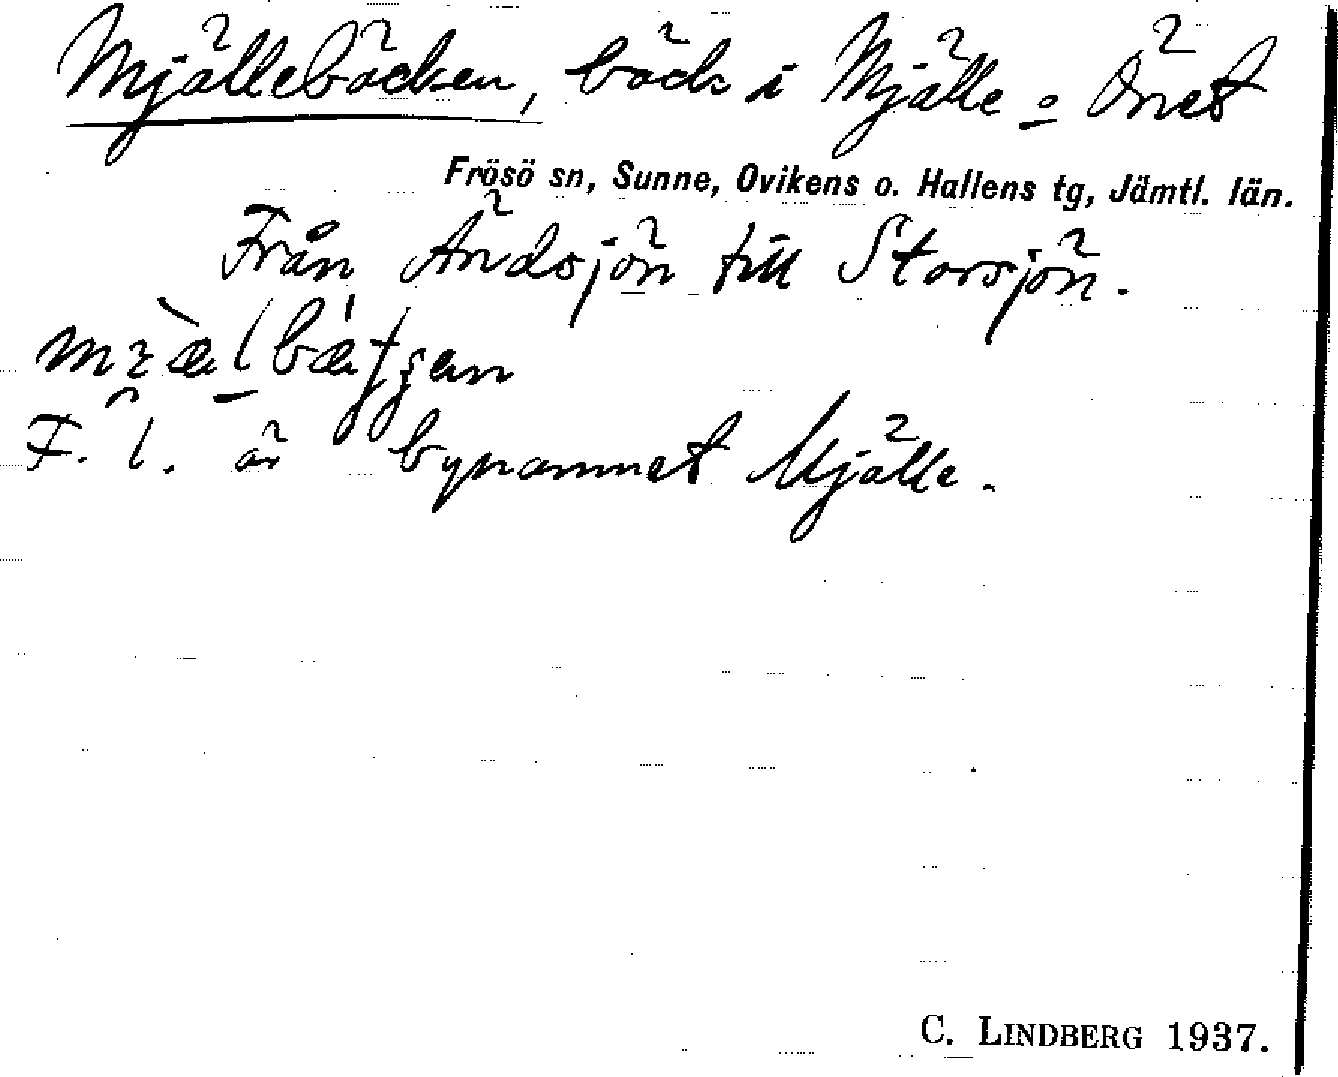 Mjällebäcken, bäck i Mjälle = Önet
Frösö sn, Sunne, Ovikens o. Hallens tg, Jämtl. län.
Från Ändsjön till Storsjön.
F. l. är bynamnet Mjälle.
C. LINDBERG 1937.